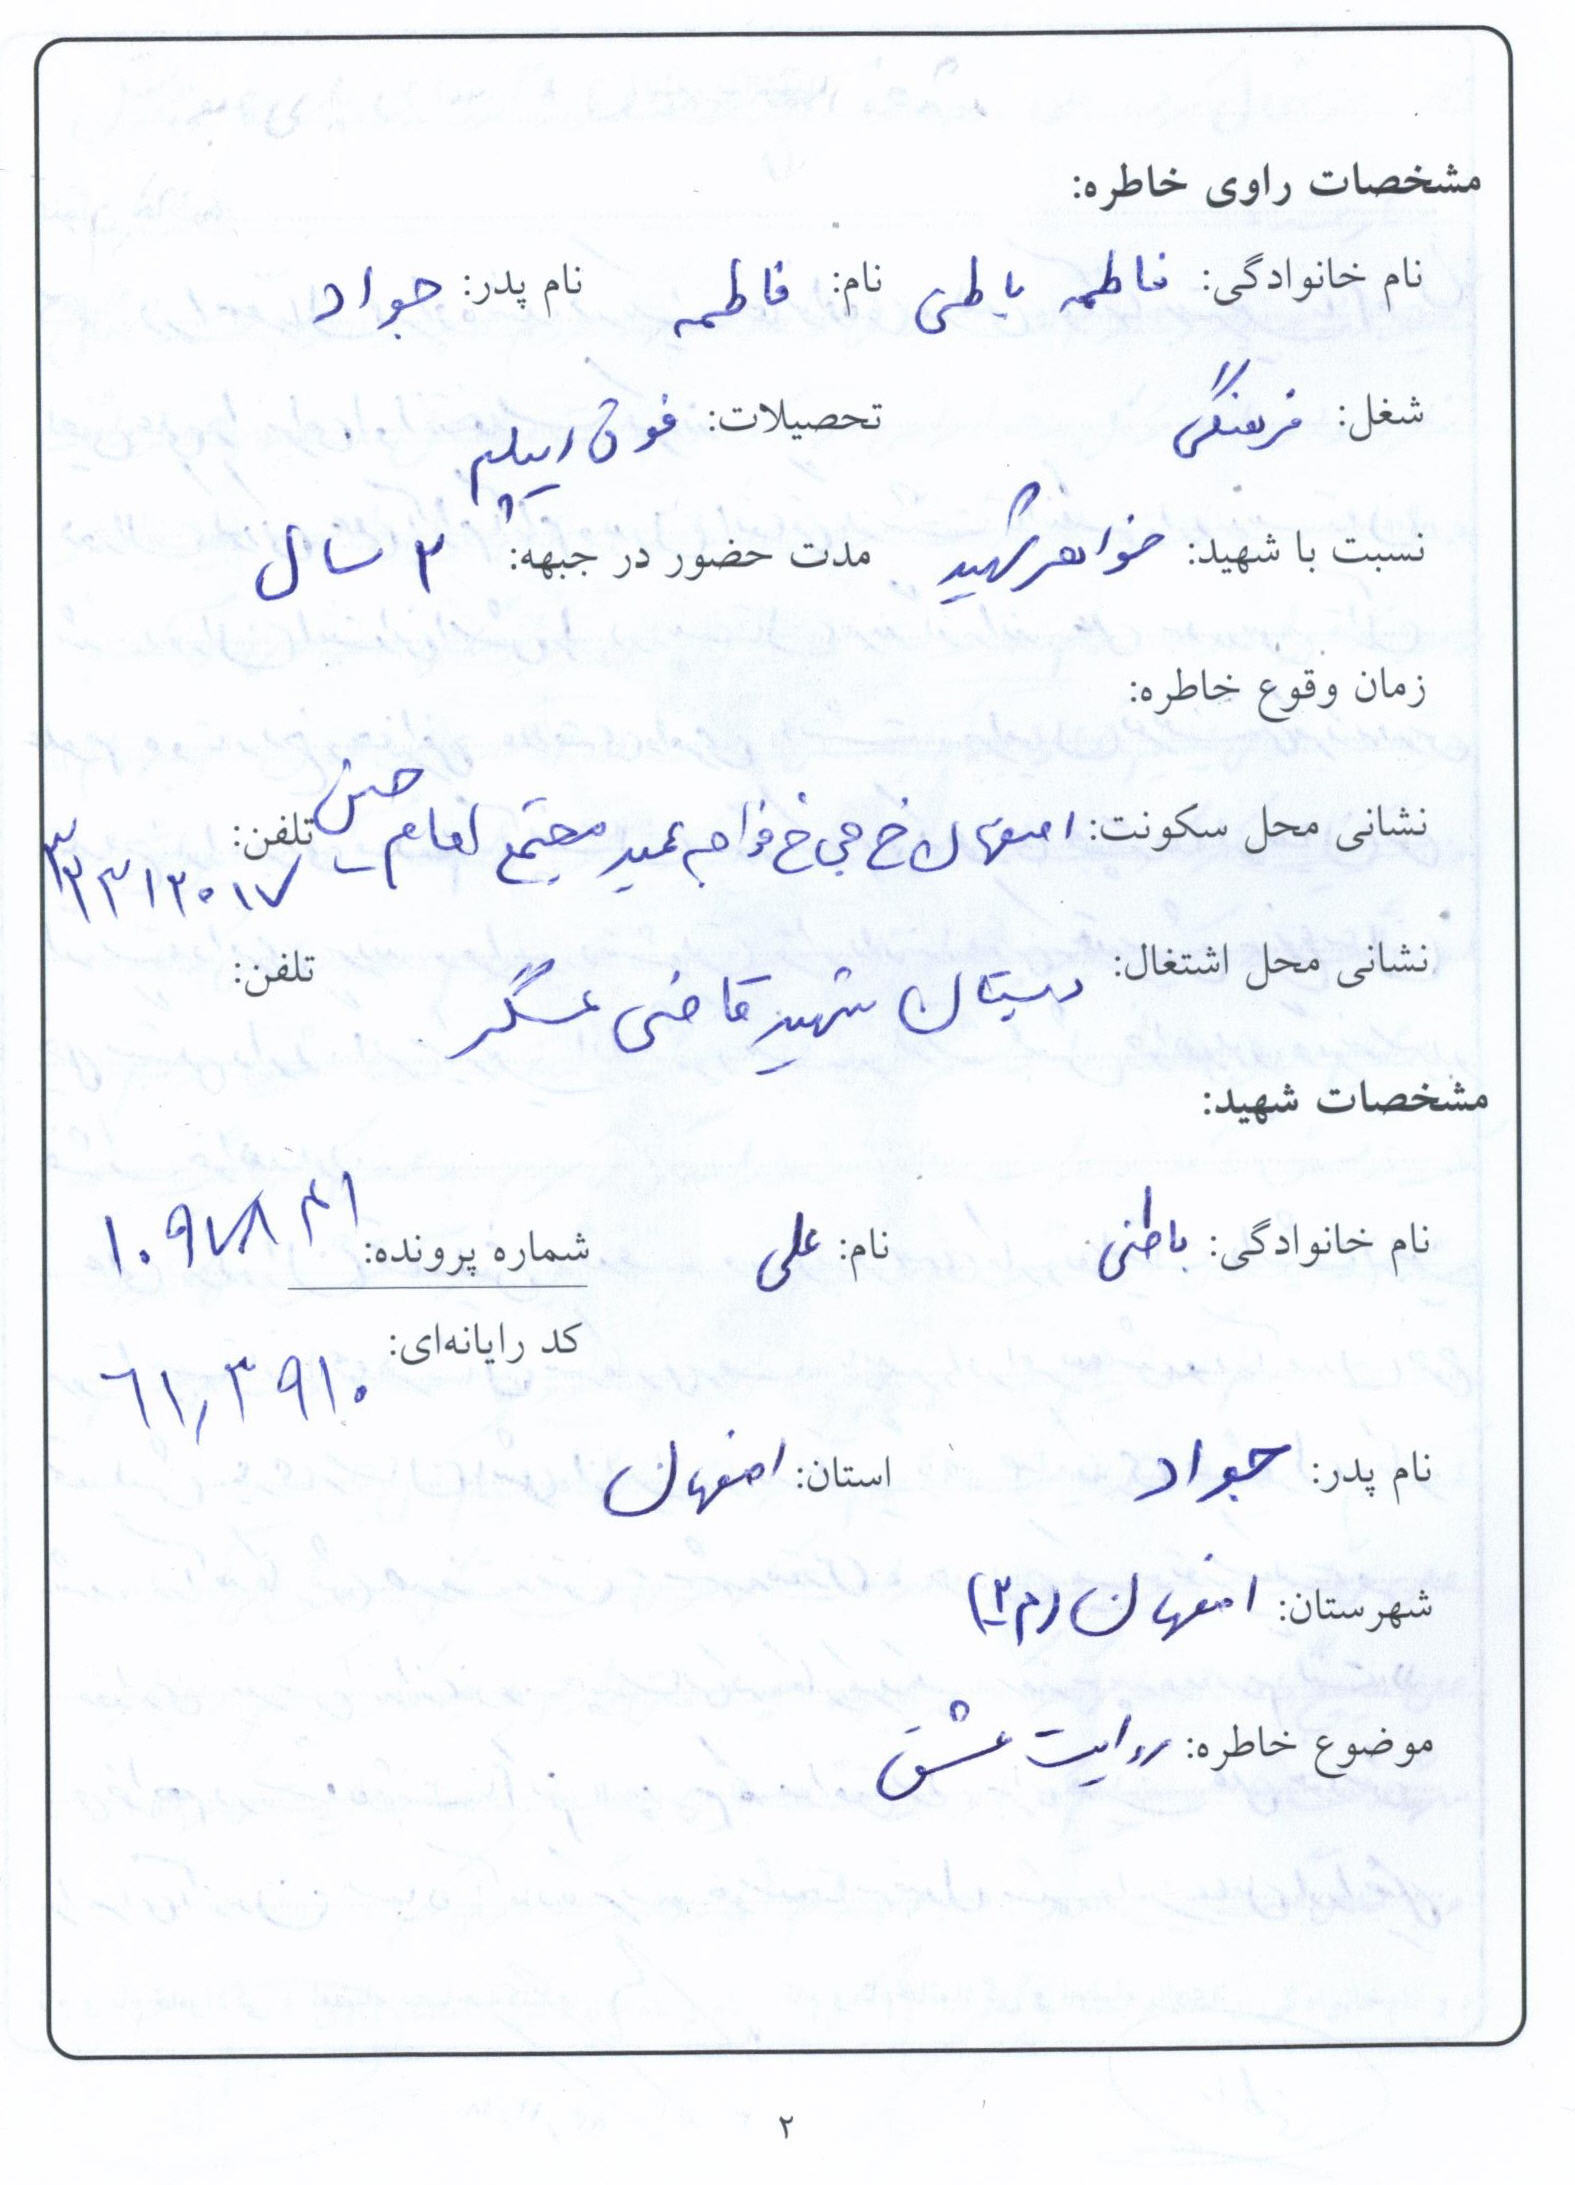 مشخصات راوی خاطره:
نام خانوادگی: فاطمه باطنی نام: فاطمه نام پدر: جواد
شغل: فرهنگی تحصیلات: فوق دیپلم
نسبت با شهید: خواهر شهید مدت حضور در جبهه: ۲ سال
زمان وقوع خاطره:
نشانی محل سکونت: اصفهان خ جی خ خواجه عمید مجتمع امام حسن تلفن: ۳۲۳۱۲۰۱۷
نشانی محل اشتغال: دبستان شهید قاضی عسگر تلفن:
مشخصات شهید:
نام خانوادگی: باطنی نام: علی شماره پرونده:
کد رایانه‌ای: ۶۱ر۳۹۱۰
نام پدر: جواد استان: اصفهان
شهرستان: اصفهان (م۲)
موضوع خاطره: روایت عشق
۲